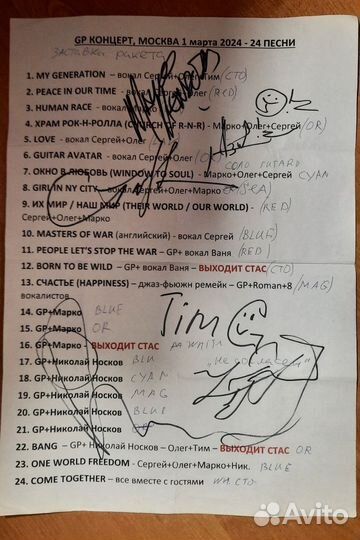 GP КОНЦЕРТ, МОСКВА 1 марта 2024 - 24 ПЕСНИ
ЗАСТАВКА ракета
1. MY GENERATION – вокал Сергей+Олег+Тим (СТО)
2. PEACE IN OUR TIME – вокал Олег (RED)
3. HUMAN RACE – вокал
4. ХРАМ РОК-Н-РОЛЛА (CHURCH OF R-N-R) – Марко+Олег+Сергей (OR)
5. LOVE – вокал Сергей+Олег
6. GUITAR AVATAR – вокал Сергей+Олег СОЛО ГИТАРЫ
7. ОКНО В ЛЮБОВЬ (WINDOW TO SOUL) – Марко+Олег+Сергей CYAN
8. GIRL IN NY CITY – вокал Сергей+Олег+Марко
9. ИХ МИР / НАШ МИР (THEIR WORLD / OUR WORLD) – (RED)
Сергей+Олег+Марко
10. MASTERS OF WAR (английский) – вокал Сергей (BLUE)
11. PEOPLE LET'S STOP THE WAR – GP+ вокал Ваня (RED)
12. BORN TO BE WILD – GP+ вокал Ваня – ВЫХОДИТ СТАС (СТО)
13. СЧАСТЬЕ (HAPPINESS) – джаз-фьюжн ремейк – GP+Roman+8 (MAG)
вокалистов
14. GP+Марко BLUE
15. GP+Марко OR
16. GP+Марко - ВЫХОДИТ СТАС
Tim
17. GP+Николай Носков BLU
18. GP+Николай Носков CYAN
19. GP+Николай Носков MAG
20. GP+Николай Носков BLUE
21. GP+Николай Носков
22. BANG – GP+ Николай Носков – Олег+Тим – ВЫХОДИТ СТАС OR
23. ONE WORLD FREEDOM - Сергей+Олег+Марко+Ник. BLUE
24. COME TOGETHER – все вместе с гостями СТО
Avito